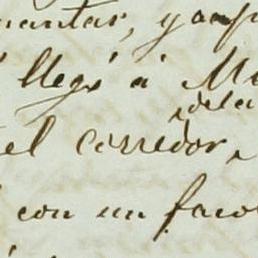 mantar, y
llegó á
de la
el corredor,
con un